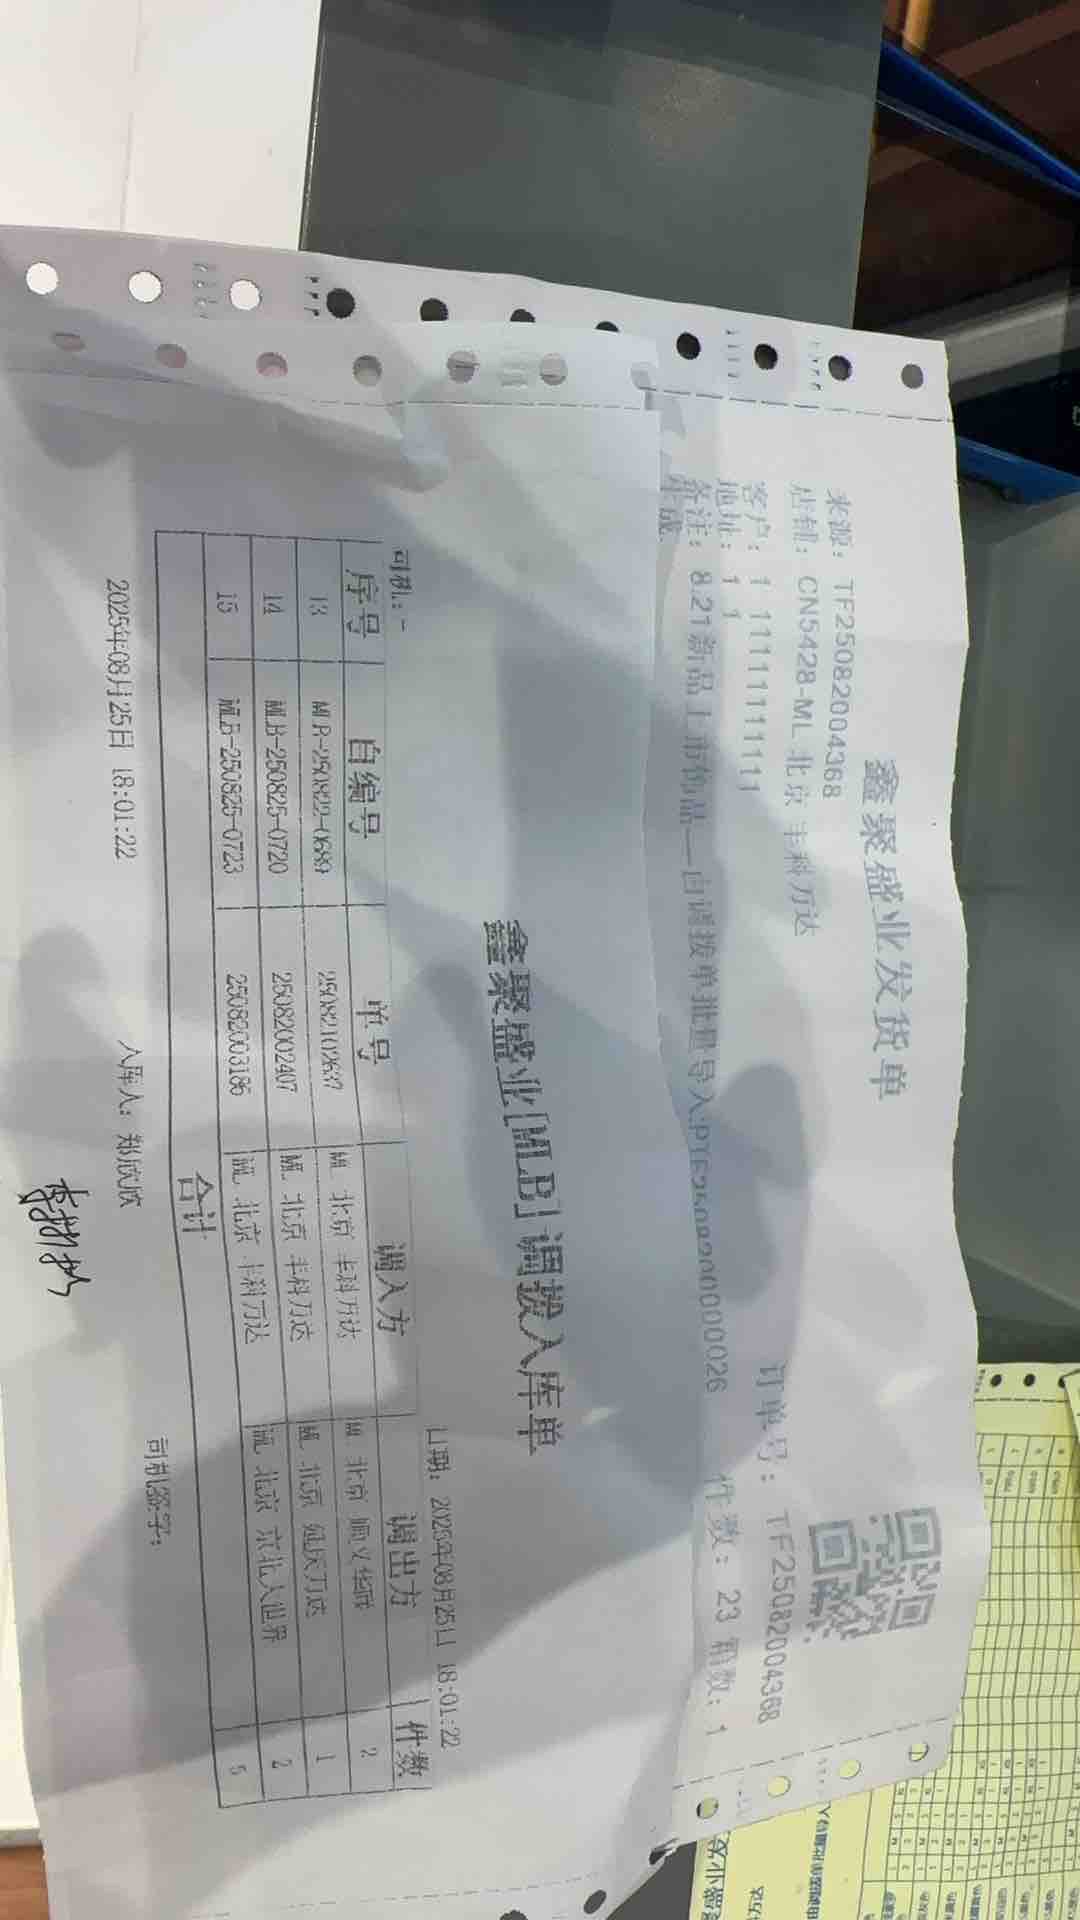 鑫聚盛业发货单
来源：TF25082004368
订单号：TF25082004368
店铺：CN5428-ML 北京 丰科万达
客户：1 11111111111
地址：1 1
件数：23 箱数：1
备注：8.21新品上市 调拨单批量导入:PTF25082000026
生成
鑫聚盛业[MLB]调拨入库单
司机：-
日期：2025年08月25日 18:01:22
序号 自编号 单号 调入方 调出方 件数
13 MLB-250822-0689 25082102637 ML 北京 丰科万达 ML 北京 顺义华联 2
14 MLB-250825-0720 25082002407 ML 北京 丰科万达 ML 北京 延庆万达 1
15 MLB-250825-0723 25082003186 ML 北京 丰科万达 ML 北京 京北大世界 2
合计 5
2025年08月25日 18:01:22 入库人：郑欣欣 司机签字：